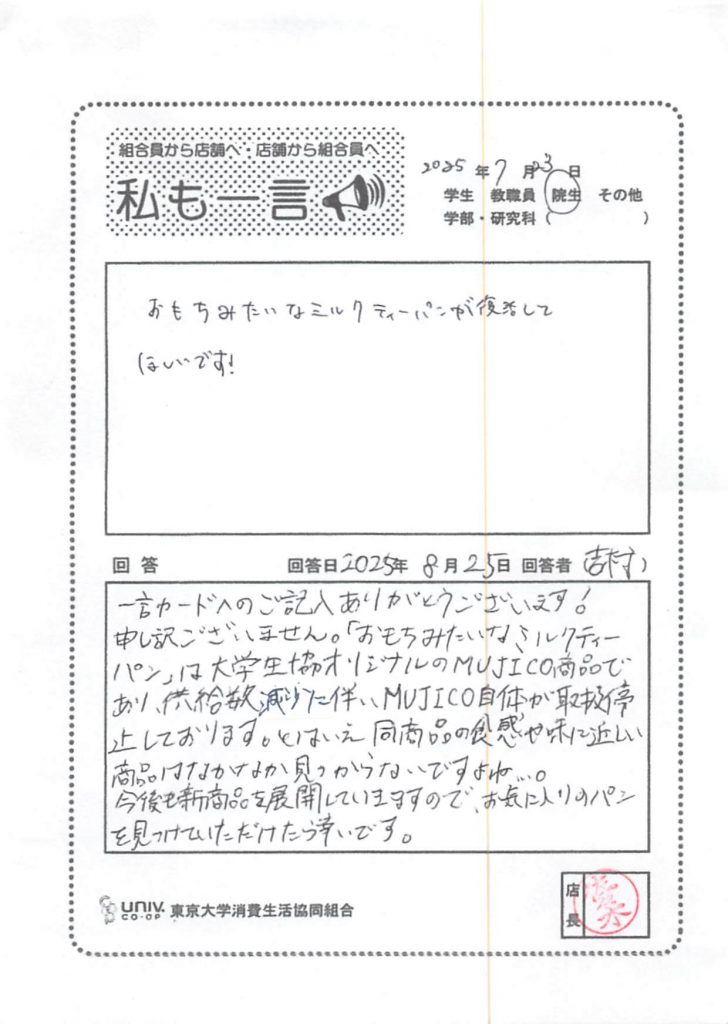 組合員から店舗へ・店舗から組合員へ
私も一言
2025年7月23日
学生 教職員 院生 その他
学部・研究科( )
おもちみたいなミルクティーパンが復活して
ほしいです!
回答 回答日2025年8月25日 回答者(吉村)
一言カードへのご記入ありがとうございます!
申し訳ございません。「おもちみたいなミルクティー
パン」は大学生協オリジナルのMUJICO商品で
あり、供給数減少に伴い、MUJICO自体が取扱停
止しております。とはいえ同商品の食感や味に近しい
商品はなかなか見つからないですよね…。
今後も新商品を展開していきますので、お気に入りのパン
を見つけていただけたら幸いです。
店長
UNIV. CO-OP 東京大学消費生活協同組合